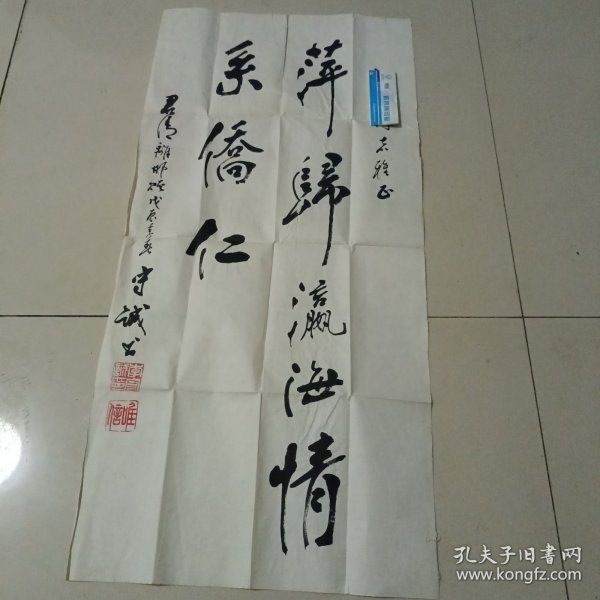 志雅正
萍歸瀛海情
系僑仁
君清離鄉
戊辰
守誠书
唯信
孔夫子旧书网
www.kongfz.com